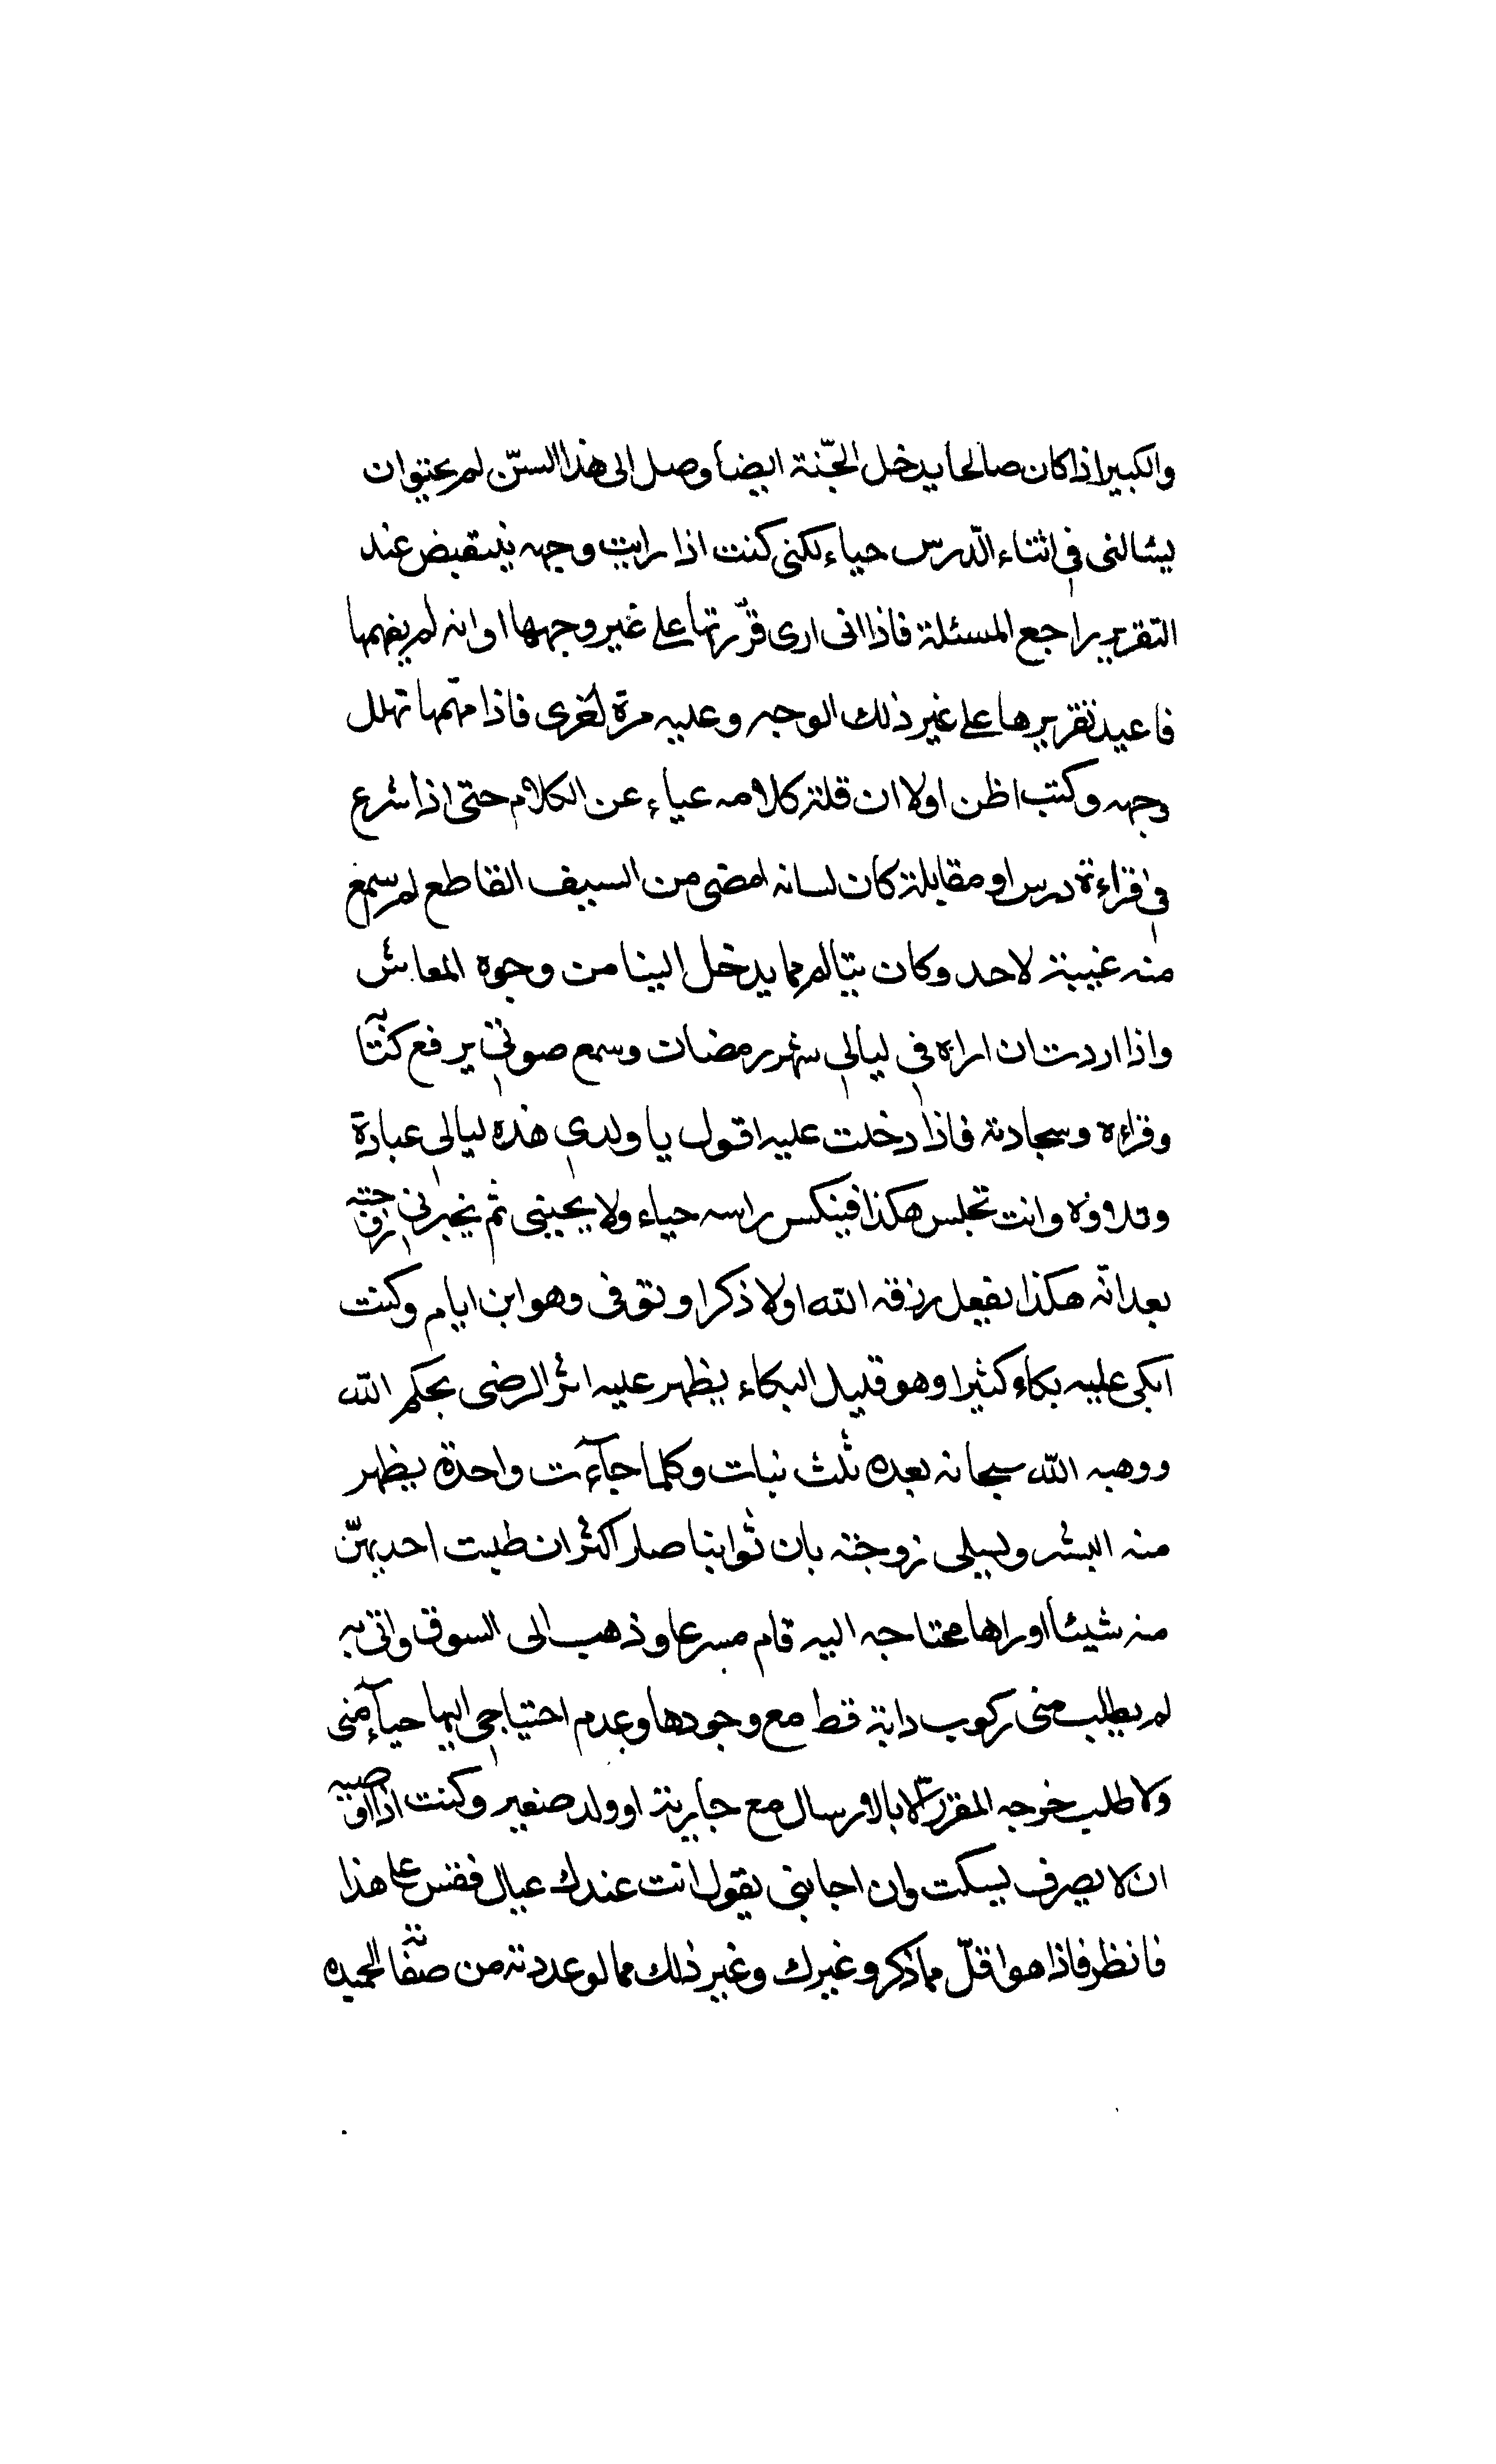 والكبير اذا كان صالحا يدخل الجنّة ايضا وصل الى هذا السنّ لم يجتز ان
يسالنى فى اثناء الدّرس حياء لكنى كنت اذا رايت وجهه ينقبض عند
التقرير راجع المسئلة فاذا انى ارى قرّرتها على غير وجهها او انه لم يفهمها
فاعيد تقريرها على غير ذلك الوجه وعليه مرة اخرى فاذا فهمها تهلل
وجهه وكنت اظن اولا ان قلة كلامه عياء عن الكلام حتى اذا شرع
فى اقراءة درس او مقابلة كان لسانه امضى من السيف القاطع لم يسمع
منه غيبة لاحد وكان يتالم مما يدخل الينا من وجوه المعاش
واذا اردت ان اراه فى ليالى شهر رمضان وسمع صوتى يرفع كتابه
وقراءه وسجادته فاذا دخلت عليه اقول يا ولدى هذه ليالى عبادة
وتلاوة وانت تجلس هكذا فينكس راسه حياء ولا يجيبنى ثم يخبرنى زوجته
بعد انّه هكذا يفعل رزقه الله اولا ذكرا وتوفى وهو ابن ايام وكنت
ابكى عليه بكاء كثيرا وهو قليل البكاء يظهر عليه اثر الرضى بحكم الله
ووهبه الله سبحانه بعده ثلث بنات وكلما جآءت واحدة يظهر
منه البشر ويسلى زوجته بان ثوابنا صار اكثر ان طلبت احديهنّ
منه شيئا او راها محتاجه اليه قام مسرعا وذهب الى السوق واتى به
لم يطلب منى ركوب دابة قط مع وجودها وعدم احتياجى اليها حيآء منى
ولا طلب خرجه المقرر الا بالارسال مع جارية او ولد صغير وكنت اذا اوصيه
ان لا يصرف يسكت وان اجابنى يقول انت عندك عيال فقس على هذا
فانظر فاذا هو اقلّ مما ذكر وغيرك وغير ذلك مما لو عددته من صفاته الحميده